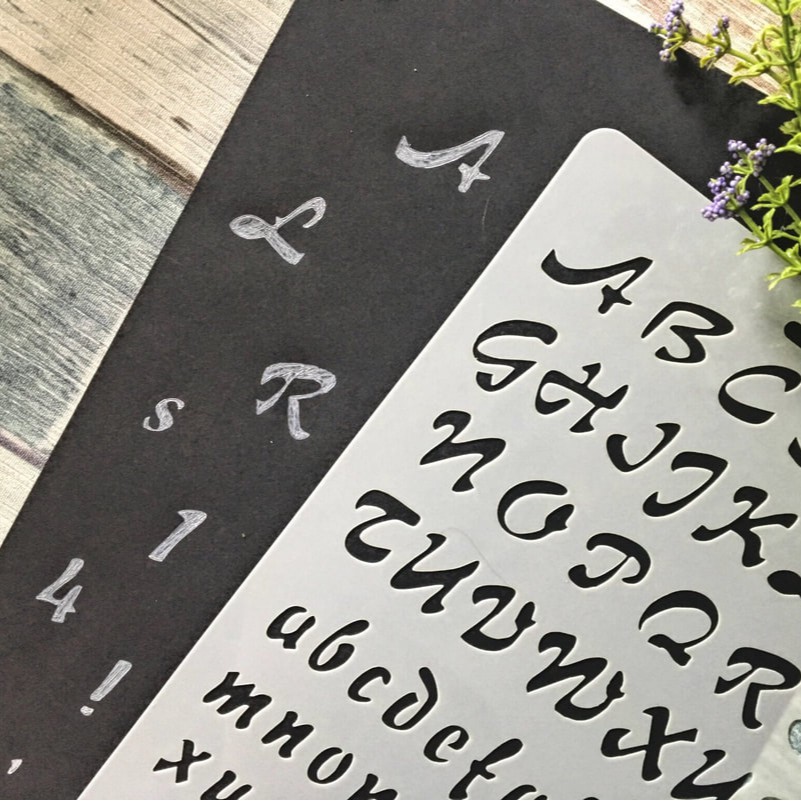 A
L
R
s
1
4
!
,
A B C
G H I J K
N O P Q R
T U V W X Y
a b c d e f g
m n o p
x y